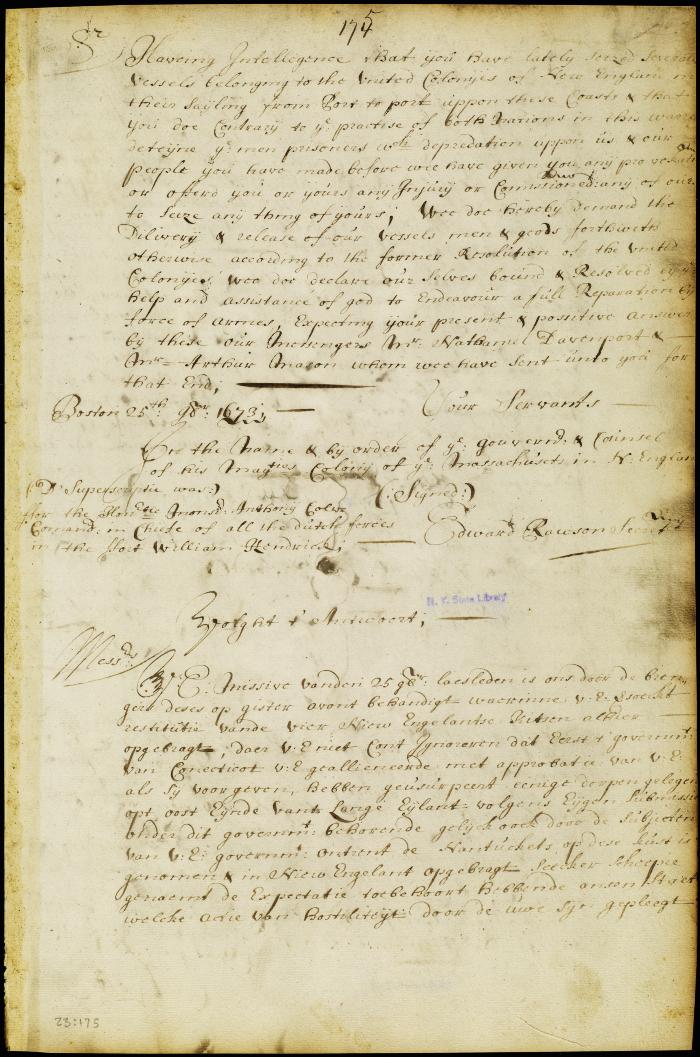 175
Sr
Haveing Intellegence that you have lately seized severall
vessels belonging to the United Colonyes of New England in
their sayling from Port to port uppon these Coasts & that
you doe Contrary to ye practise of both Nations in this warre
deteyne ye men prisoners wch depredation uppon us & our
people you have made before wee have given you any provocation
or offerd you or yours any Injury or Comissioned any of ours
to seize any thing of yours; Wee doe hereby demand the
Dilivery & release of our vessels men & goods forthwith
otherwise according to the former Resolution of the united
Colonyes wee doe declare our selves bound & Resolved by ye
help and assistance of god to Endeavour a full Reparation by
force of armes, Expecting your present & possitive answer
by these our Messengers Mr. Nathaniel Davenport &
Mr. Arthur Mason whom wee have sent unto you for
that End;
Boston 25th 8br 1673; Your Servants
In the Name & by order of ye gouvernr & Counsel
of his Magties Colony of ye Massachusets in N. England
(D' Superscriptie was:) (Signed:)
for the Monsr. Anthony Colve
Comand. in Chiefe of all the dutch forces Edward Rawson Secretry
in the Fort William Hendrick;
N. Y. State Library
Volght 't Antwoort;
Messrs
E. missive vanden 25 8br. laesleden is ons door de bren-
gers deses op gister avont behandigt waerinne v. E. versoeckt
restitutie vande vier Niew Engelantse Ketsen alhier
opgebragt; daer v. E. niet Cont Ignoreren dat Eerst 't governmt
van Conecticot v. E. geallieneerde met approbatie van v. E.
als sy voorgeven, hebben geusurpeert eenige dorpen gelegen
opt oost Eynde vant Lange Eylant volgens Eygen submissie
onder dit governmt behorende gelyck ook door de subjecten
van v. E. governmt ontrent de Nantuckets op dese kust is
genomen & in Niew Engelant opgebragt seecker
genaemt de Expectatie toebehoort hebbende aen
welcke actie van hostiliteyt door de uwe syn gepleegt
23:175